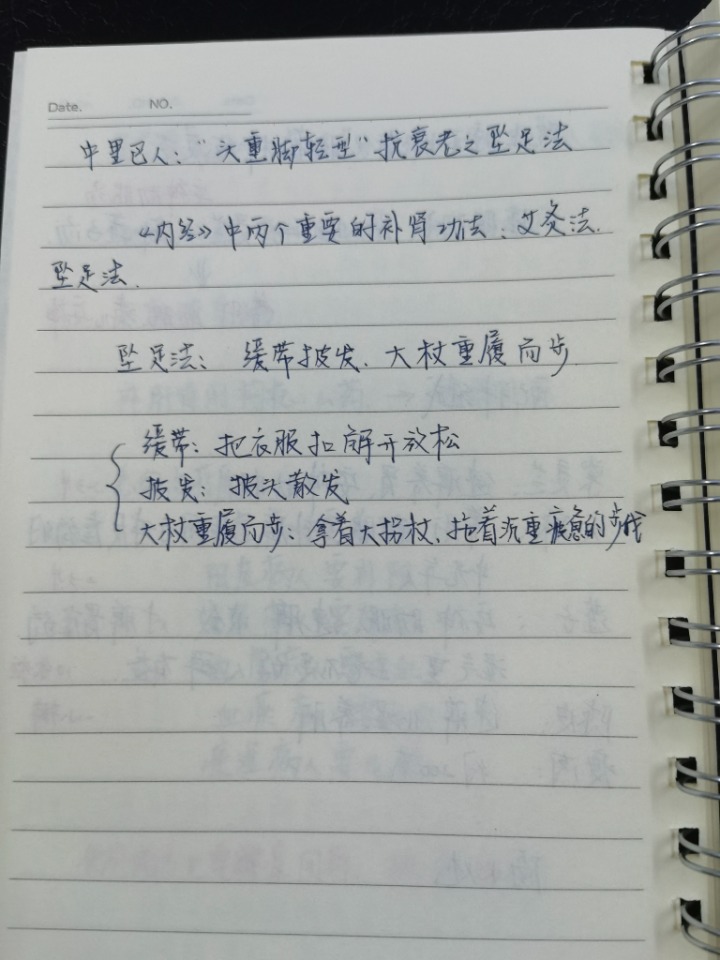 Date. NO.
中里巴人："头重脚轻型"抗衰老之坠足法
《内经》中两个重要的补肾功法：艾灸法.
坠足法.
坠足法： 缓带披发、大杖重履而步.
缓带：把衣服扣解开放松
披发：披头散发
大杖重履而步：拿着大拐杖、拖着沉重疲惫的步伐